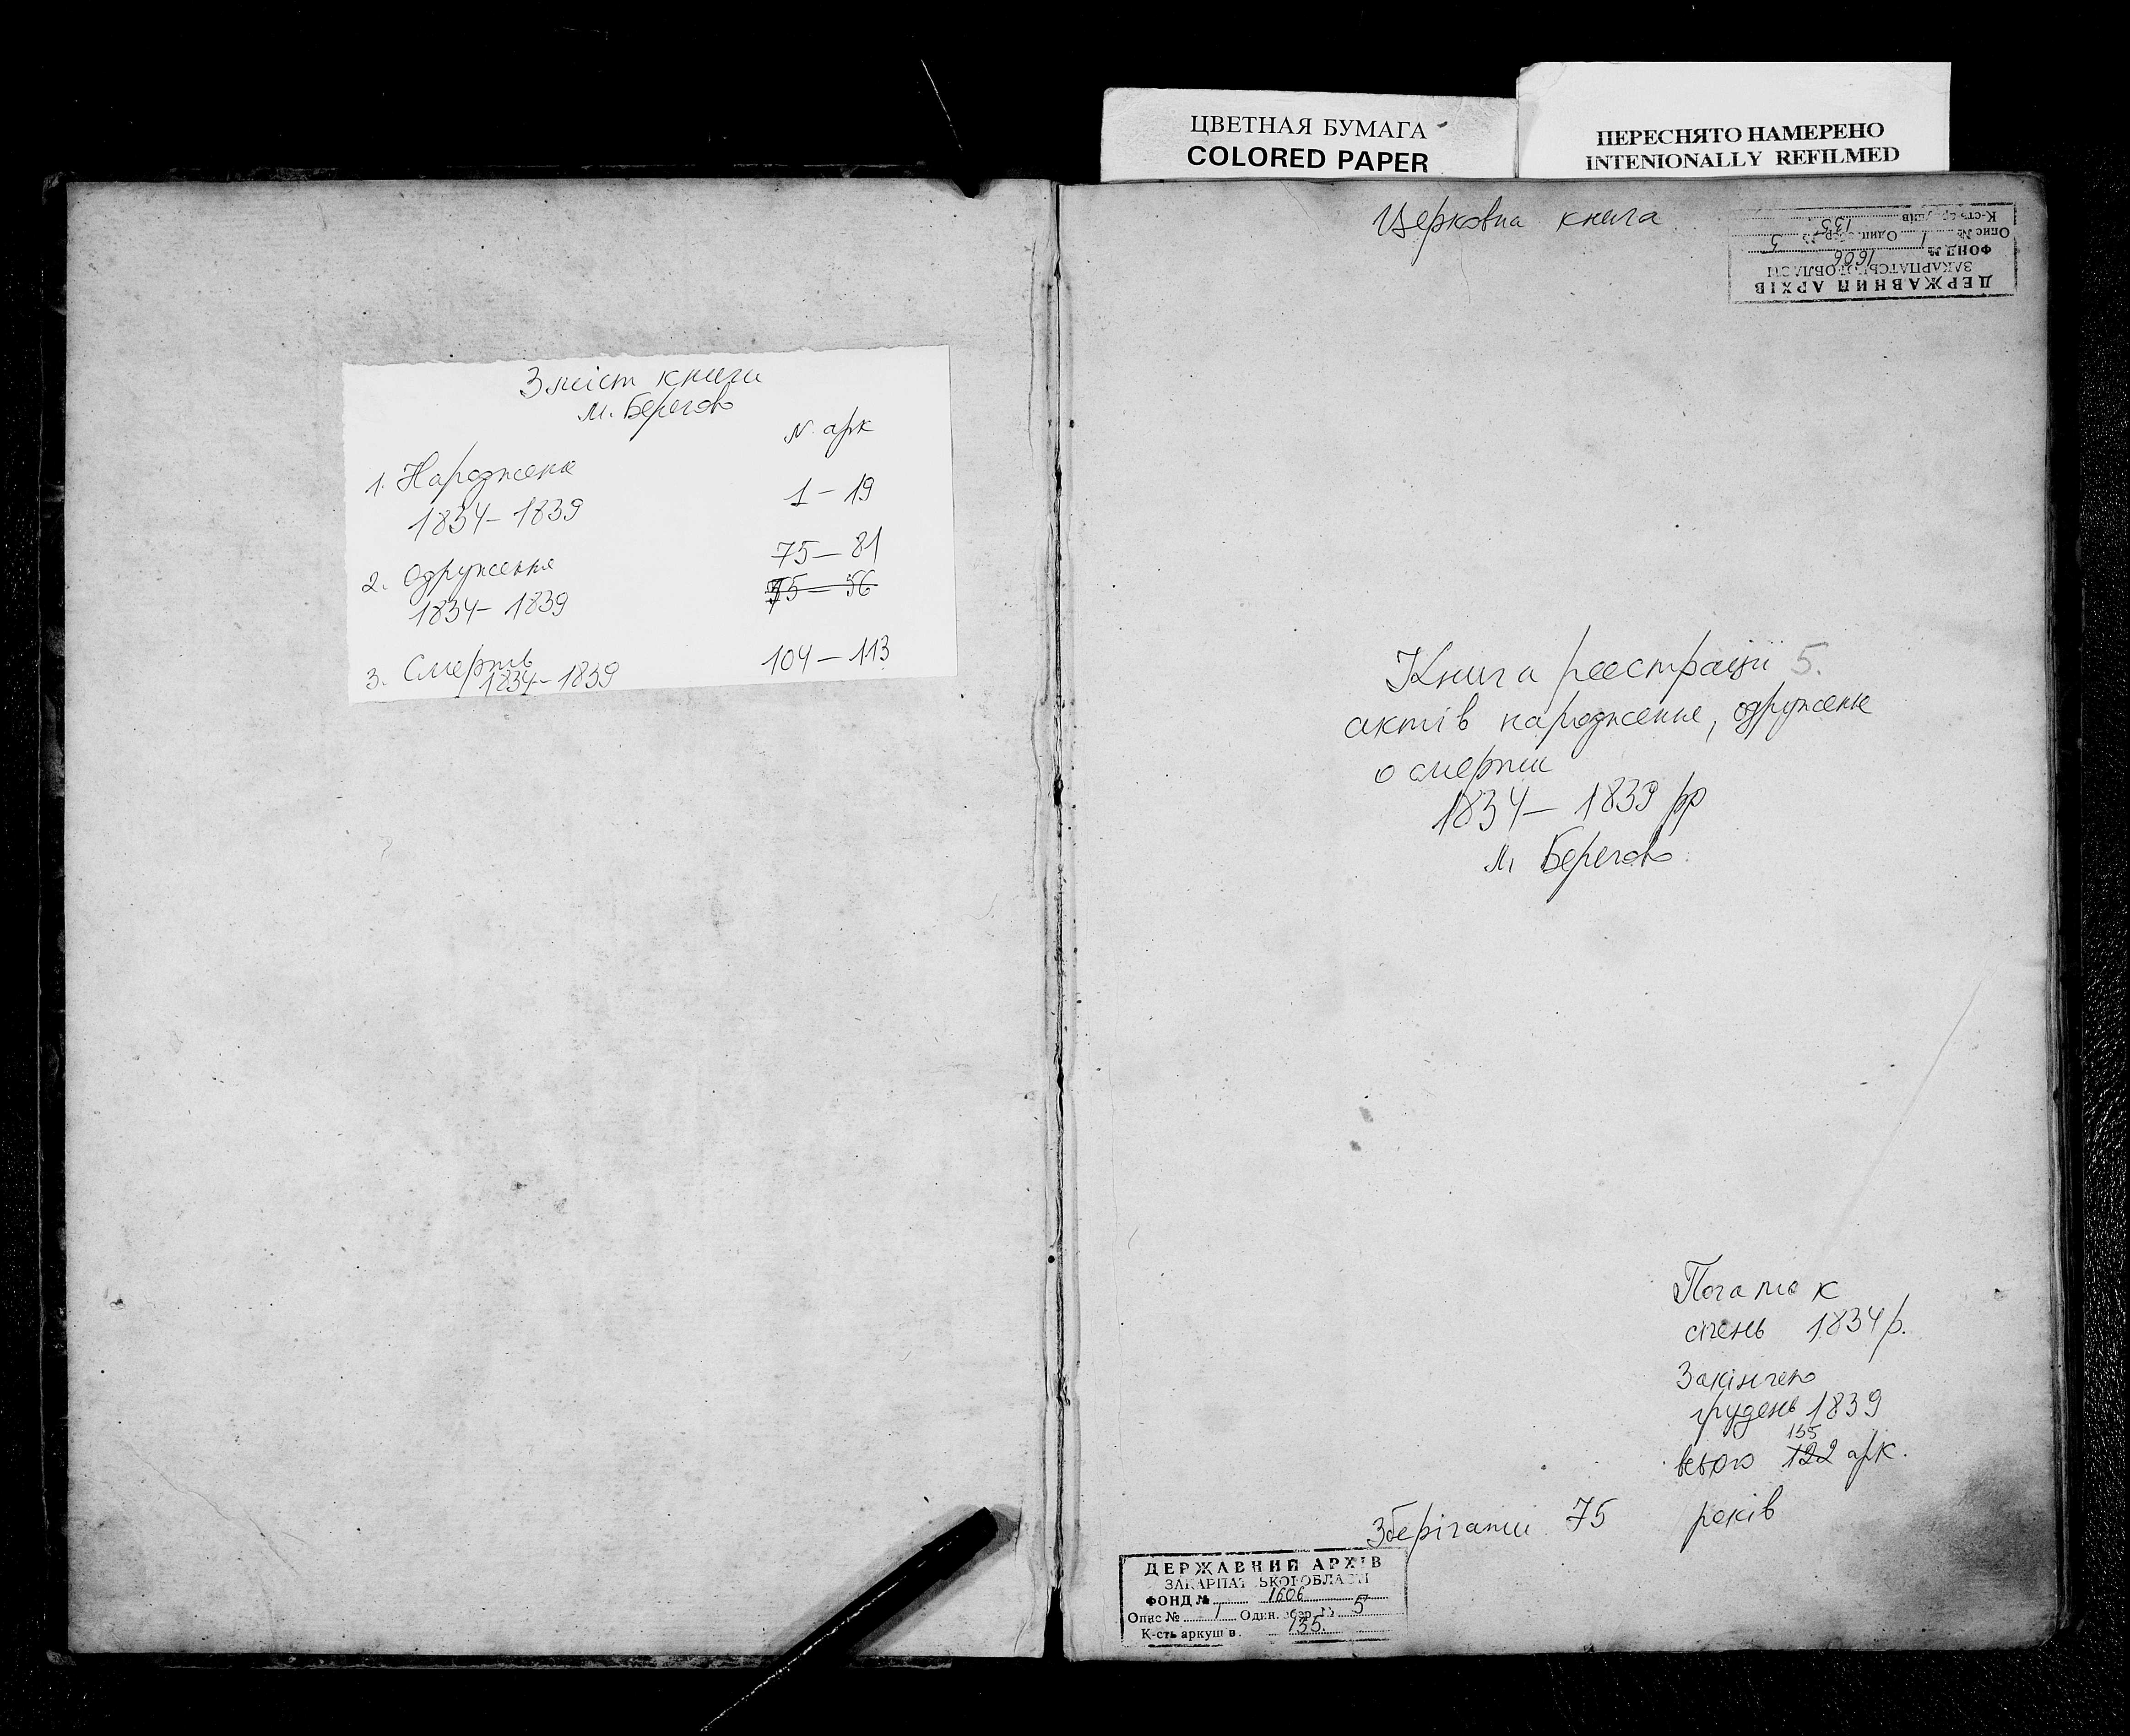 ЦВЕТНАЯ БУМАГА
COLORED PAPER
ПЕРЕСНЯТО НАМЕРЕНО
INTENIONALLY REFILMED
Зміст книги
м. Берегово
N арк
1. Народження
1834 – 1839 1 – 19
2. Одруження 75 – 81
1834 – 1839 75 – 56
3. Смерть
1834 – 1839 104 – 113
Церковна книга
ДЕРЖАВНИЙ АРХІВ
ЗАКАРПАТСЬКОЇ ОБЛАСТІ
ФОНД № 1606
Опис № 1 Один. збер. № 5
К-сть аркушів 135
Книга реєстрації 5.
актів народження, одружень
о смерти
1834 – 1839 рр
м. Берегово
Початок
січень 1834 р.
Закінчено
грудень 1839
135
всього 122 арк.
Зберігати 75 років
ДЕРЖАВНИЙ АРХІВ
ЗАКАРПАТСЬКОЇ ОБЛАСТІ
ФОНД № 1606
Опис № 1 Один. збер. № 5
К-сть аркушів 135.